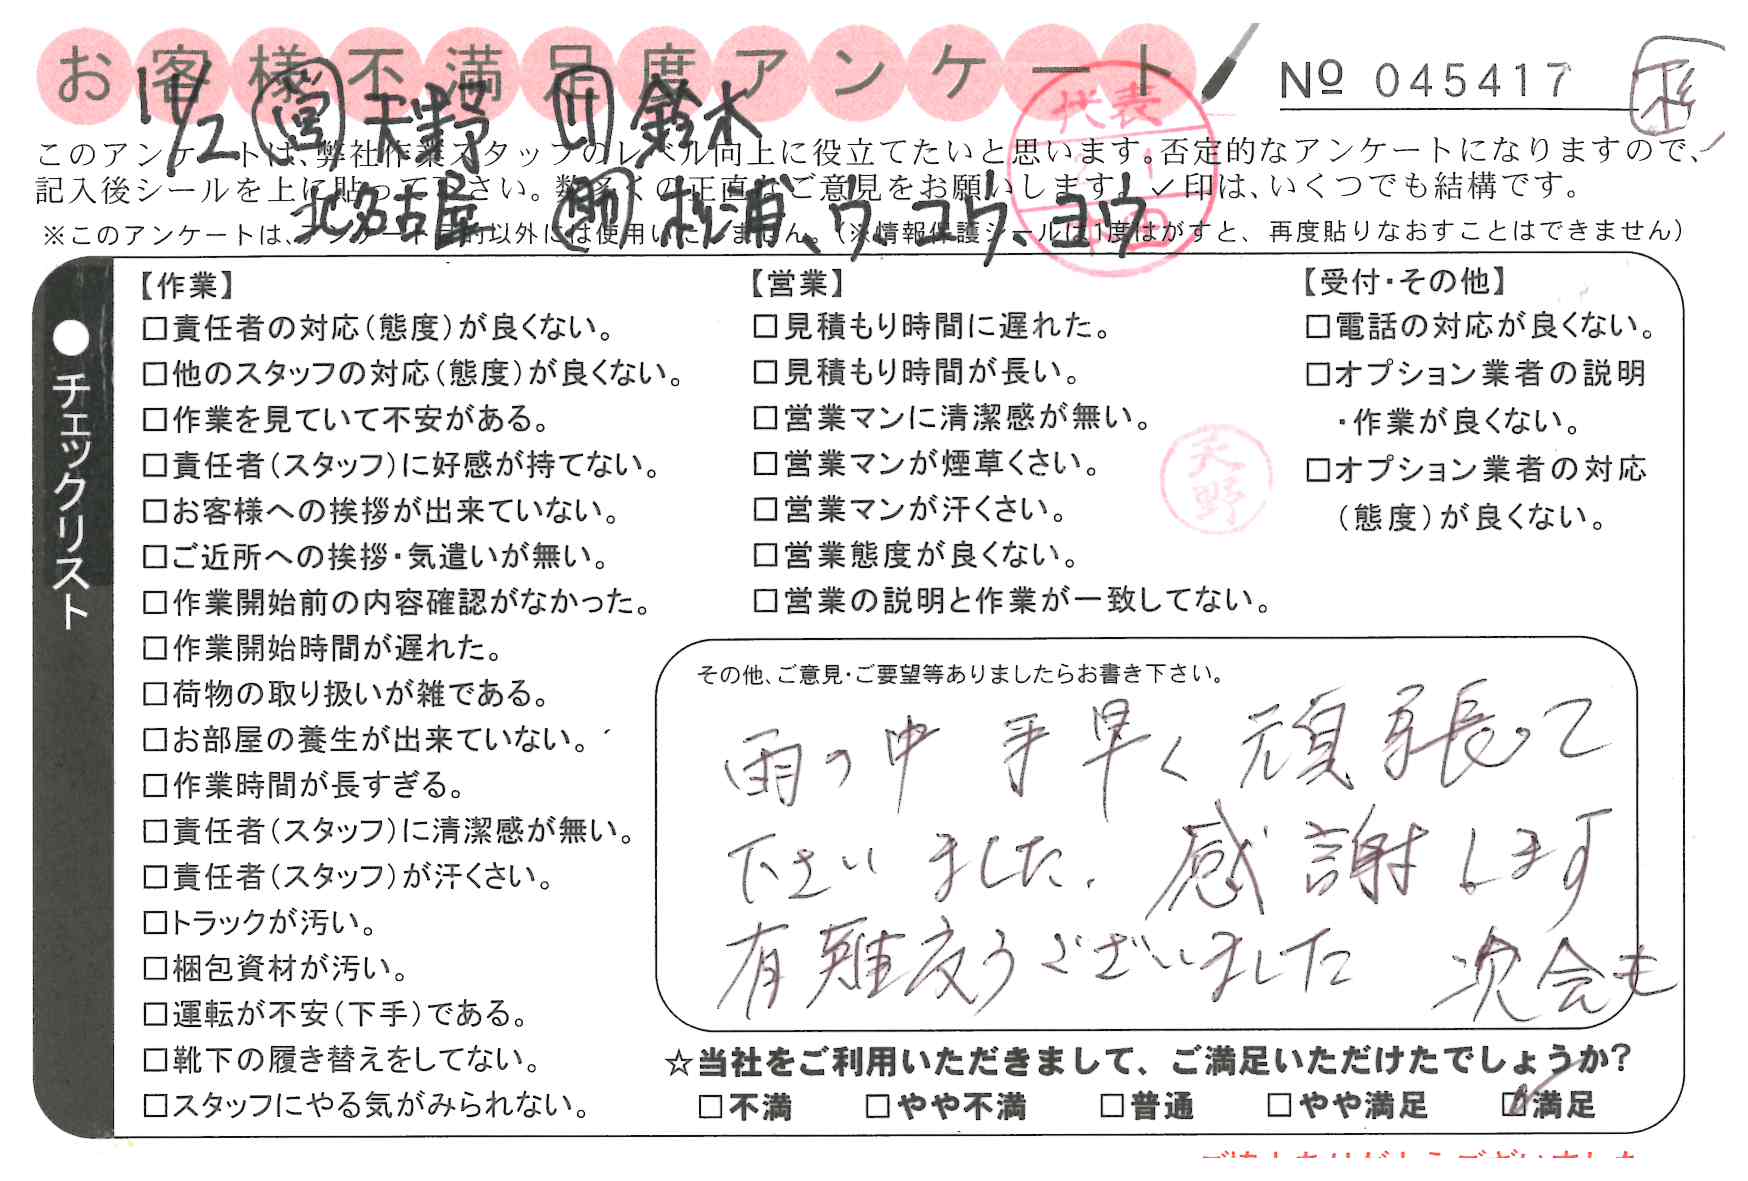 お客様不満足度アンケート
№ 045417
11/2 営 天野 川 鈴木
北名古屋 松浦、ワ、コウ、ヨウ
代表
このアンケートは、弊社作業スタッフのレベル向上に役立てたいと思います。否定的なアンケートになりますので、
記入後シールを上に貼って下さい。数多くの正直なご意見をお願いします。✓印は、いくつでも結構です。
※このアンケートは、アンケート目的以外には使用いたしません。(※情報保護シールは1度はがすと、再度貼りなおすことはできません)
●チェックリスト
【作業】
□責任者の対応(態度)が良くない。
□他のスタッフの対応(態度)が良くない。
□作業を見ていて不安がある。
□責任者(スタッフ)に好感が持てない。
□お客様への挨拶が出来ていない。
□ご近所への挨拶・気遣いが無い。
□作業開始前の内容確認がなかった。
□作業開始時間が遅れた。
□荷物の取り扱いが雑である。
□お部屋の養生が出来ていない。
□作業時間が長すぎる。
□責任者(スタッフ)に清潔感が無い。
□責任者(スタッフ)が汗くさい。
□トラックが汚い。
□梱包資材が汚い。
□運転が不安(下手)である。
□靴下の履き替えをしてない。
□スタッフにやる気がみられない。
【営業】
□見積もり時間に遅れた。
□見積もり時間が長い。
□営業マンに清潔感が無い。
□営業マンが煙草くさい。
□営業マンが汗くさい。
□営業態度が良くない。
□営業の説明と作業が一致してない。
天野
【受付・その他】
□電話の対応が良くない。
□オプション業者の説明
・作業が良くない。
□オプション業者の対応
(態度)が良くない。
その他、ご意見・ご要望等ありましたらお書き下さい。
雨の中 手早く 頑張って
下さいました。感謝します
有難度うございました 次会も
☆当社をご利用いただきまして、ご満足いただけたでしょうか?
□不満 □やや不満 □普通 □やや満足 ☑満足
ご協力ありがとうございました